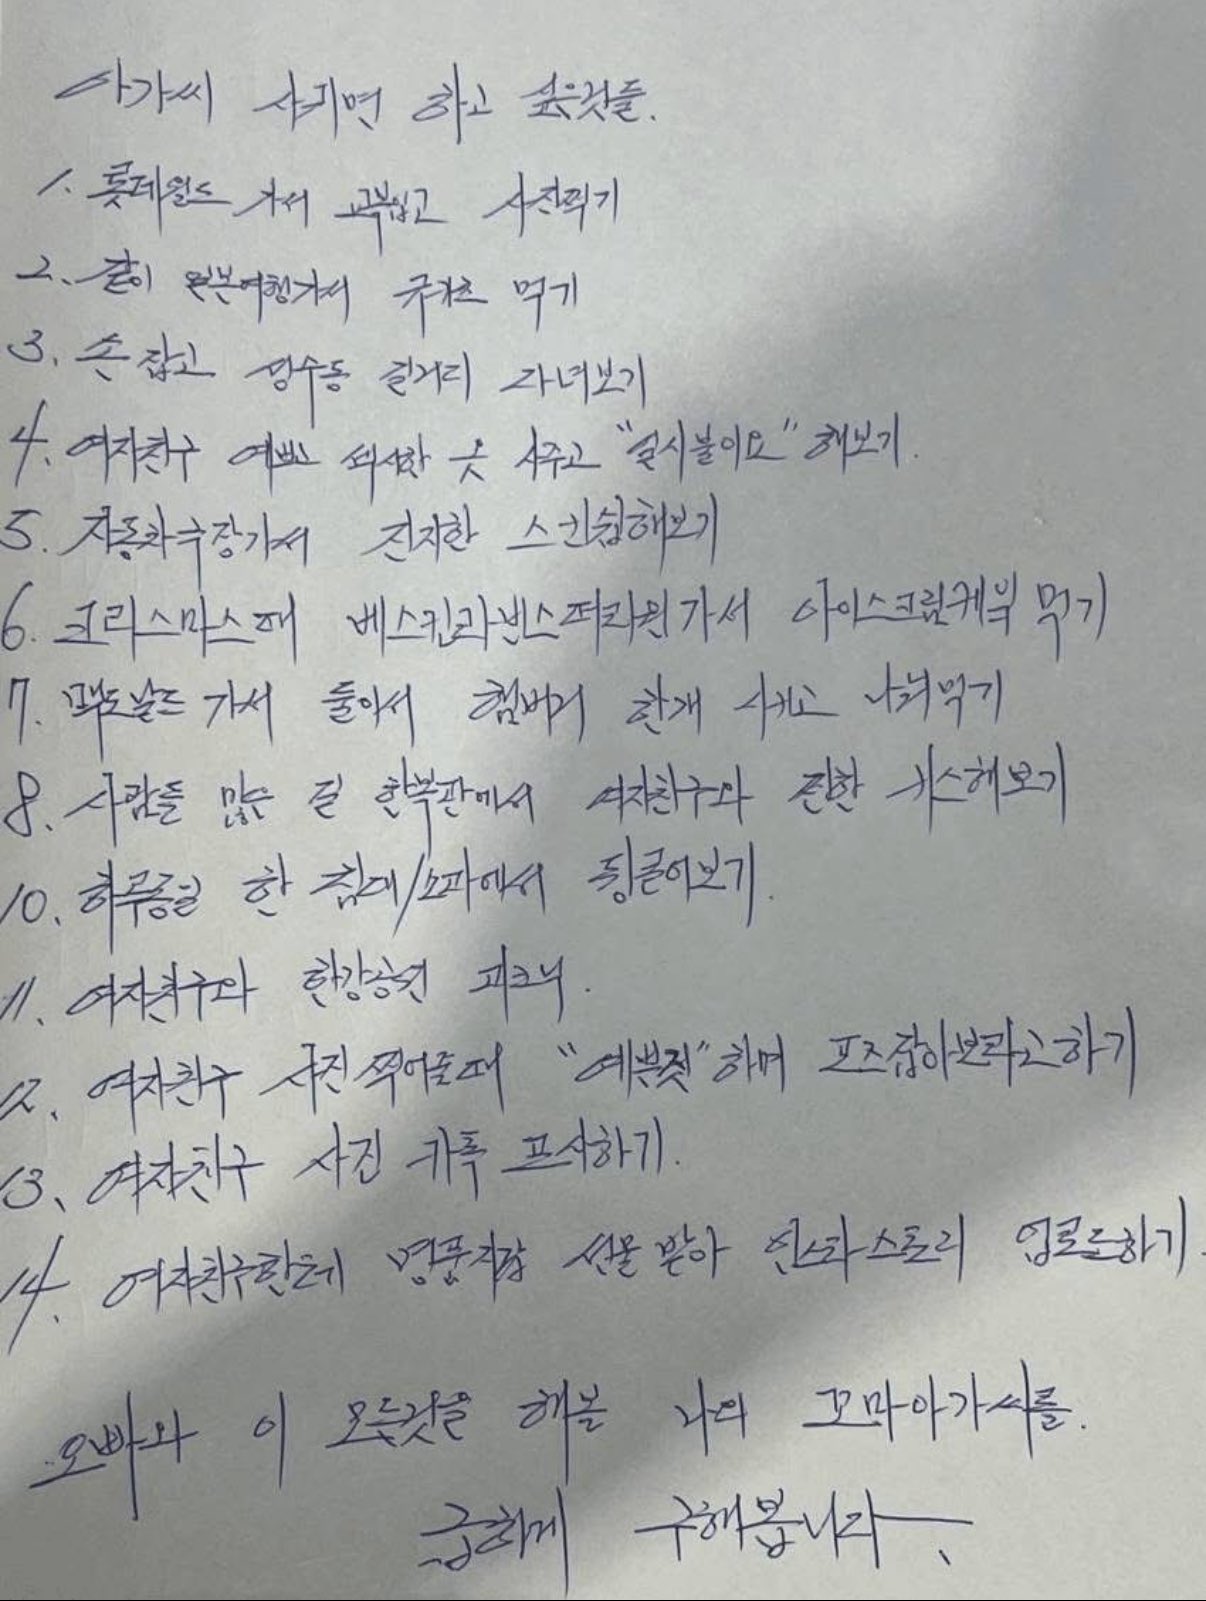 아가씨 사귀면 하고 싶은것들.
1. 롯데월드 가서 교복입고 사진찍기
2. 같이 일본여행가서 규카츠 먹기
3. 손 잡고 성수동 길거리 다녀보기
4. 여자친구 예쁘고 섹시한 옷 사주고 "일시불이요" 해보기.
5. 자동차극장가서 진지한 스킨쉽해보기
6. 크리스마스때 베스킨라빈스써리원가서 아이스크림케잌 먹기
7. 맥도날드 가서 둘이서 햄버거 한개 시키고 나눠먹기
8. 사람들 많은 길 한복판에서 여자친구와 찐한 키스해보기
10. 하루종일 한 침대/소파에서 뒹굴어보기.
11. 여자친구와 한강공원 피크닉.
12. 여자친구 사진 찍어줄때 "예쁜짓" 하며 포즈잡아보라고하기
13. 여자친구 사진 카톡 프사하기.
14. 여자친구한테 명품지갑 선물 받아 인스타 스토리 업로드하기.
오빠와 이 모든것을 해볼 나의 꼬마아가씨를.
급하게 구해봅니다